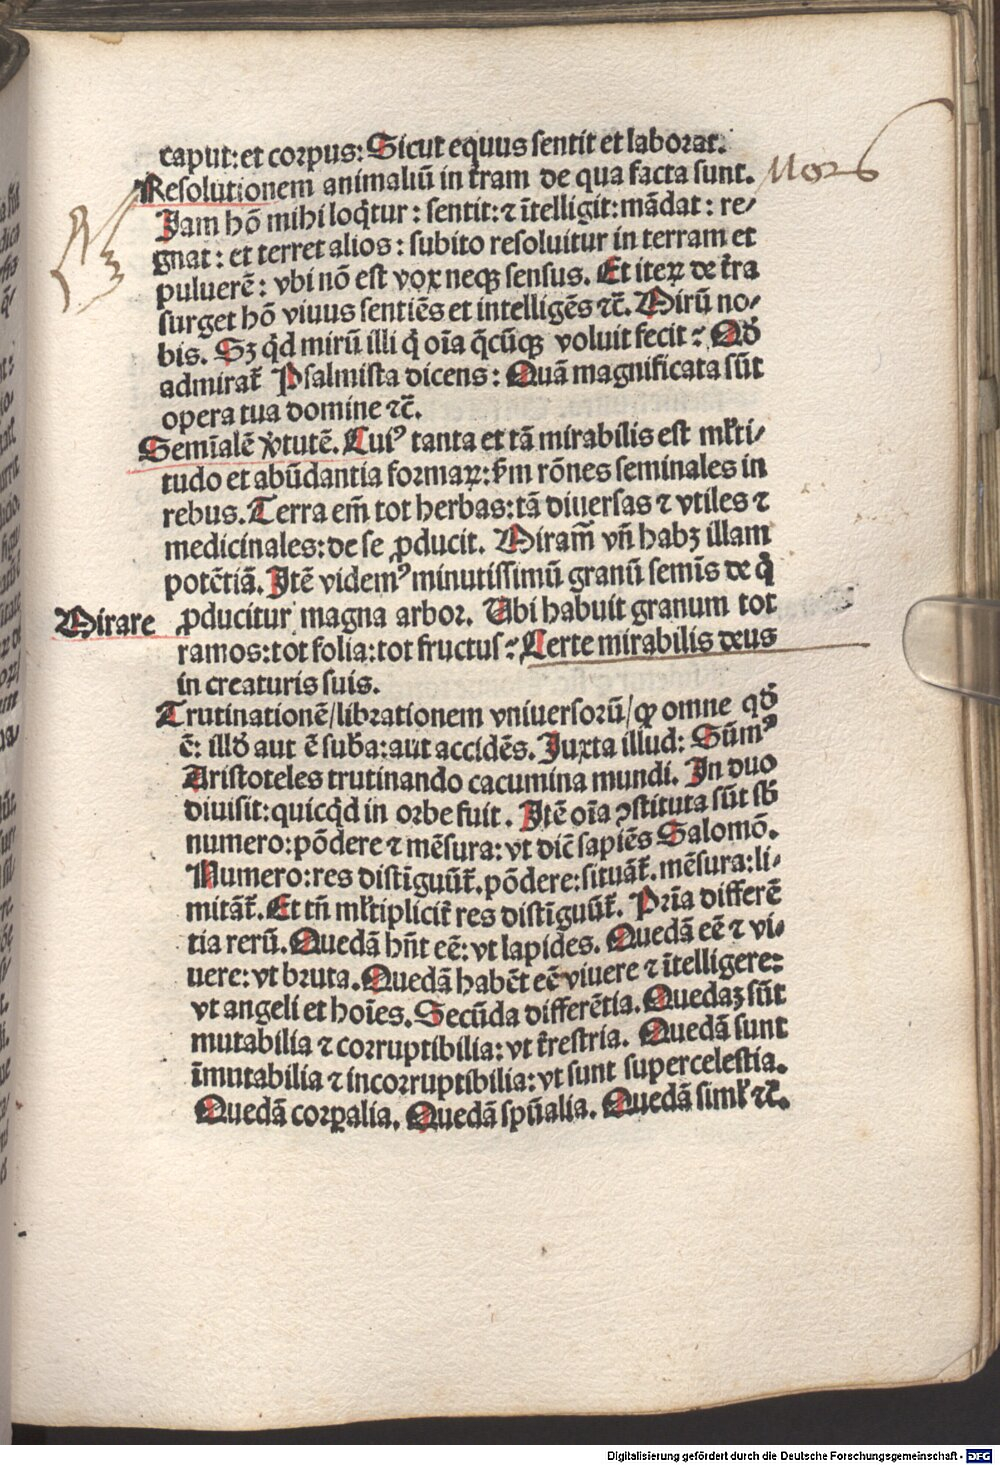 caput: et corpus: Sicut equus sentit et laborat.
Resolutionem animaliū in t̄ram de qua facta sunt. Mors
Jam hō mihi loq̄tur: sentit: ⁊ ītelligit: mādat: re⸗
gnat: et terret alios: subito resoluitur in terram et
puluerē: vbi nō est vox neqꝫ sensus. Et iteꝝ de t̄ra
surget hō viuus sentiēs et intelligēs ⁊c̄. Mirū no⸗
bis. Sꝫ qd̄ mirū illi q̄ oīa q̄cūqꝫ voluit fecit? Qd̄
admirat̄ Psalmista dicens: Quā magnificata sūt
opera tua domine ⁊c̄.
Semīalē v̓tutē. Cuiꝰ tanta et tā mirabilis est ml̄ti⸗
tudo et abūdantia formaꝝ: fm̄ rōnes seminales in
rebus. Terra em̄ tot herbas: tā diuersas ⁊ vtiles ⁊
medicinales: de se ꝓducit. Miram̄ vn̄ habꝫ illam
potētiā. Jtē videmꝰ minutissimū granū semīs de q̄
Mirare ꝓducitur magna arbor. Ubi habuit granum tot
ramos: tot folia: tot fructus? Certe mirabilis deus
in creaturis suis.
Trutinationē/librationem vniuersorū/qꝫ omne qd̄
ē: illd̄ aut ē sub̄a: aut accidēs. Juxta illud: Sūmꝰ
Aristoteles trutinando cacumina mundi. In duo
diuisit: quicqd̄ in orbe fuit. Jtē oīa ꝯstituta sūt sb̄
numero: pōdere ⁊ mēsura: vt dic̄ sapiēs Salomō.
Numero: res distīguūt̄. pōdere: situāt̄. mēsura: li⸗
mitāt̄. Et tn̄ ml̄tiplicit̄ res distīguūt̄. Pria differē
tia rerū. Quedā hn̄t eē: vt lapides. Quedā eē ⁊ vi⸗
uere: vt bruta. Quedā habēt eē viuere ⁊ ītelligere:
vt angeli et hoīes. Secūda differētia. Quedaꝫ sūt
mutabilia ⁊ corruptibilia: vt t̄restria. Quedā sunt
īmutabilia ⁊ incorruptibilia: vt sunt supercelestia.
Quedā corꝑalia. Quedā spūalia. Quedā siml̄ ⁊c̄.
Digitalisierung gefördert durch die Deutsche Forschungsgemeinschaft - DFG